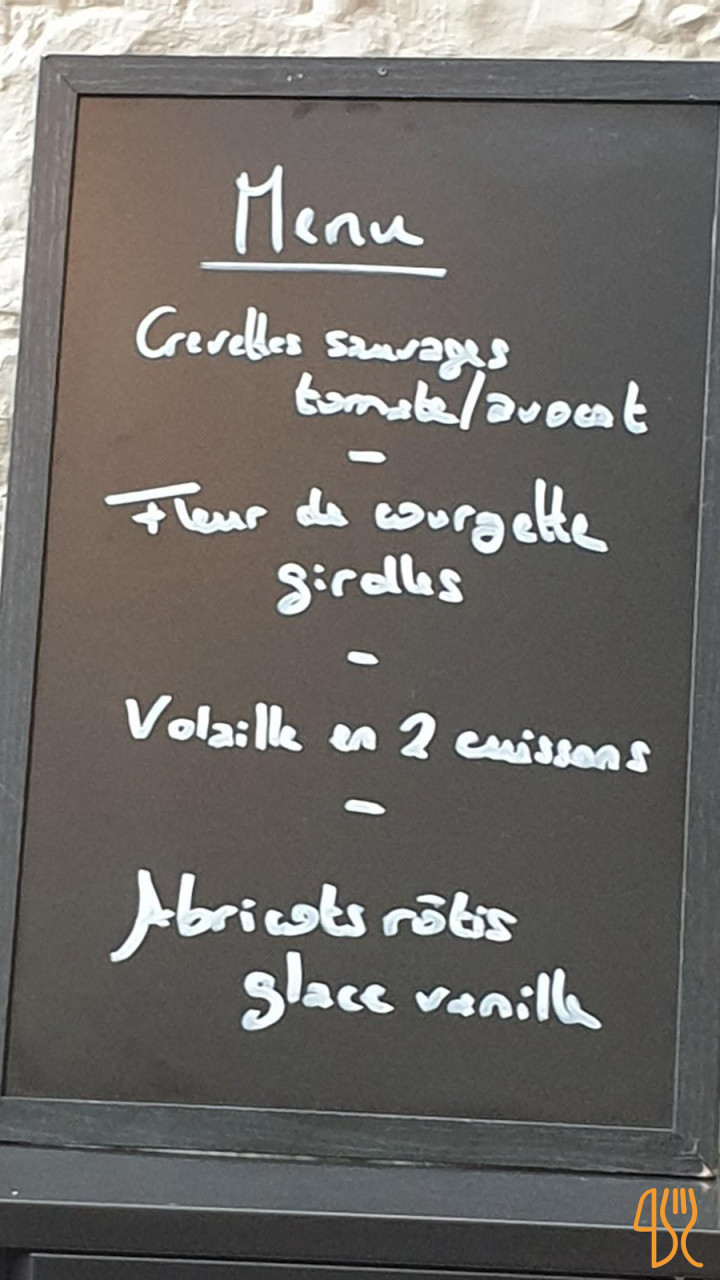 Menu
Crevettes sauvages
tomate/avocat
-
Fleur de courgette
girolles
-
Volaille en 2 cuissons
-
Abricots rôtis
glace vanille